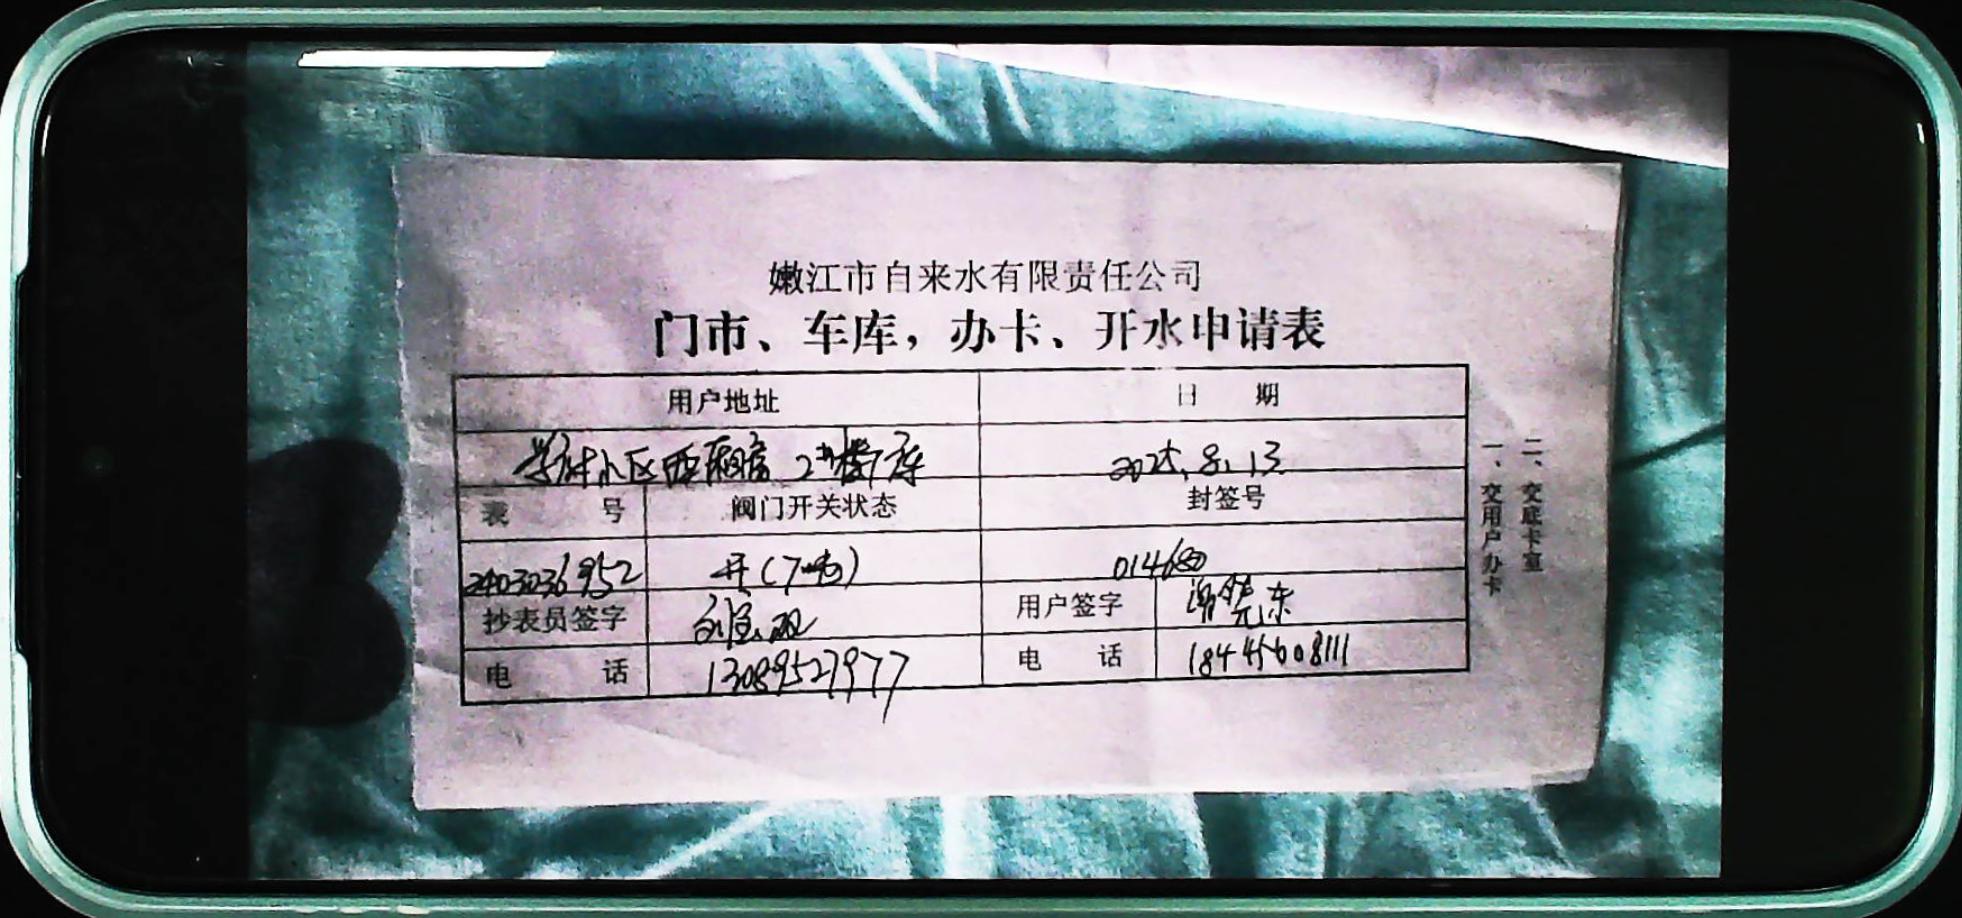 嫩江市自来水有限责任公司
门市、车库，办卡、开水申请表
用户地址 日 期
学府小区西厢房 2#楼库 2025.8.13
表 号 阀门开关状态 封签号
2403036952 开(7吨) 014680
抄表员签字 用户签字 东
电 话 13089527977 电 话 18445608111
一、交用户办卡
二、交底卡室